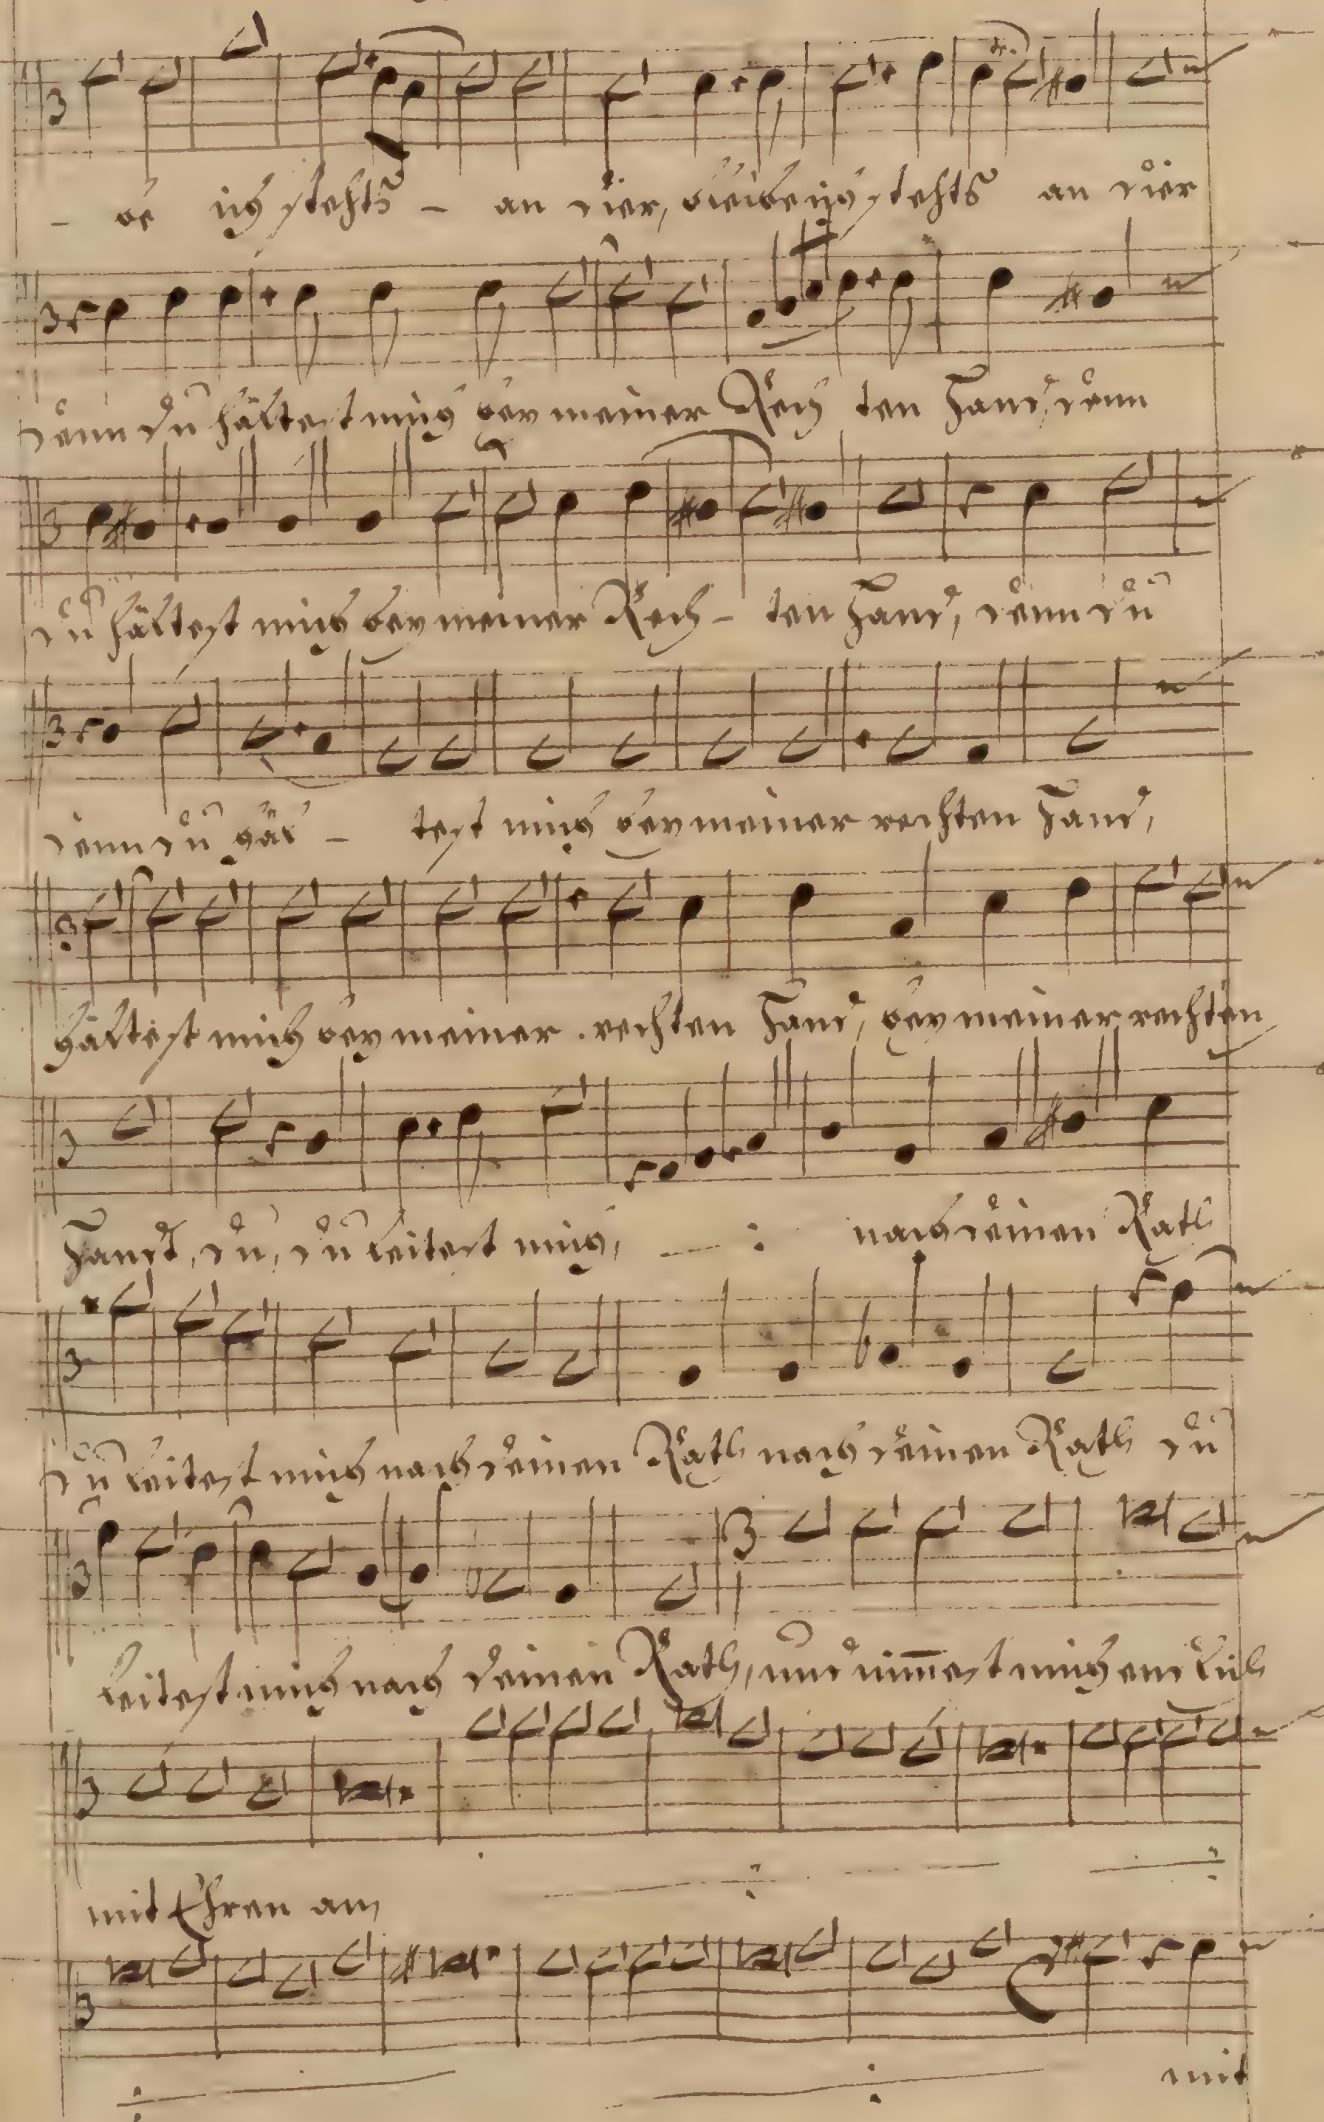 - be ich stehts - an dier, bleibe ich stehts an dier
denn du hältest mich bey meiner Rech ten Hand, denn
du hältest mich bey meiner Rech - ten Hand, denn du
denn du häl - test mich bey meiner rechten Hand,
hältest mich bey meiner rechten Hand, bey meiner rechten
Handt, du, du leitest mich, nach deinen Rath
du leitest mich nach deinen Rath nach deinen Rath du
leitest mich nach deinen Rath, und nim̅est mich endlich
mit Ehren an,
mit